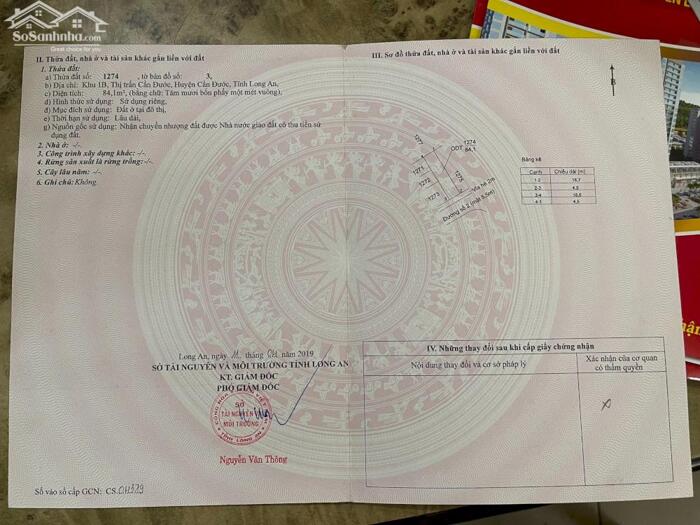 SoSanhnha.com
Great choice for you
II. Thửa đất, nhà ở và tài sản khác gắn liền với đất
1. Thửa đất:
a) Thửa đất số: 1274 , tờ bản đồ số: 3,
b) Địa chỉ: Khu 1B, Thị trấn Cần Đước, Huyện Cần Đước, Tỉnh Long An,
c) Diện tích: 84,1m², (bằng chữ: Tám mươi bốn phẩy một mét vuông),
d) Hình thức sử dụng: Sử dụng riêng,
đ) Mục đích sử dụng: Đất ở tại đô thị,
e) Thời hạn sử dụng: Lâu dài,
g) Nguồn gốc sử dụng: Nhận chuyển nhượng đất được Nhà nước giao đất có thu tiền sử
dụng đất.
2. Nhà ở: -/-
3. Công trình xây dựng khác: -/-
4. Rừng sản xuất là rừng trồng: -/-
5. Cây lâu năm: -/-
6. Ghi chú: Không.
Long An, ngày tháng năm 2019
SỞ TÀI NGUYÊN VÀ MÔI TRƯỜNG TỈNH LONG AN
KT. GIÁM ĐỐC
PHÓ GIÁM ĐỐC
SỞ
TÀI NGUYÊN VÀ
MÔI TRƯỜNG
TỈNH LONG AN
Nguyễn Văn Thông
Số vào sổ cấp GCN: CS.
III. Sơ đồ thửa đất, nhà ở và tài sản khác gắn liền với đất
B
1277
ODT 1274
84,1
1271
1272
1273
1275
Vỉa hè 2m
Đường số 2 (mặt 5,5m)
Bảng kê
Cạnh Chiều dài (m)
1-2 18,7
2-3 4,5
3-4 18,6
4-1 4,5
IV. Những thay đổi sau khi cấp giấy chứng nhận
Nội dung thay đổi và cơ sở pháp lý
Xác nhận của cơ quan
có thẩm quyền